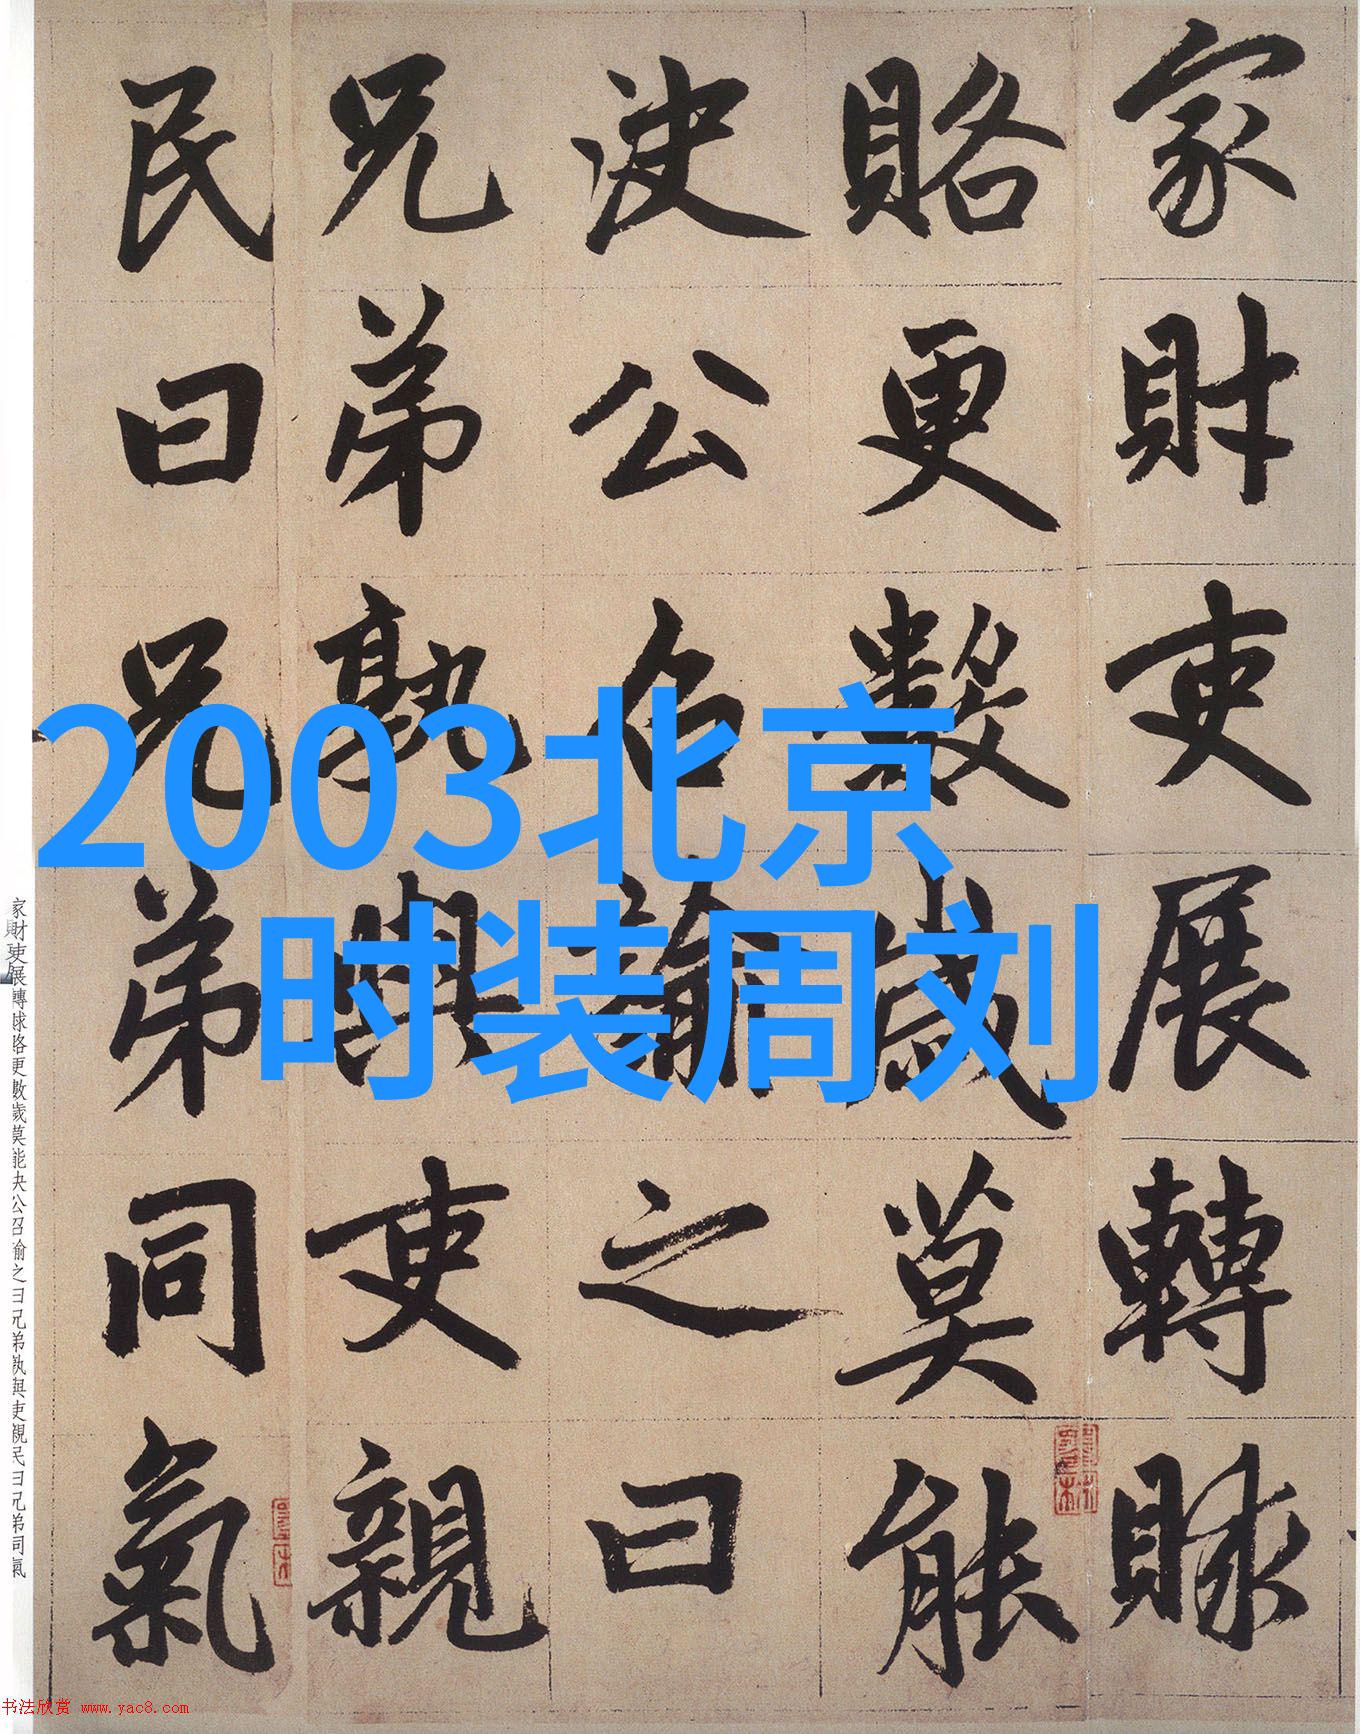 2003北京
时装周刘
家財吏展轉賕
賂更數歲莫能
決公召諭之曰
兄弟孰與吏親
民曰兄弟同氣
家財吏展轉賕賂更數歲莫能决公召諭之曰兄弟孰與吏親民曰兄弟同氣
书法欣赏 www.yac8.com